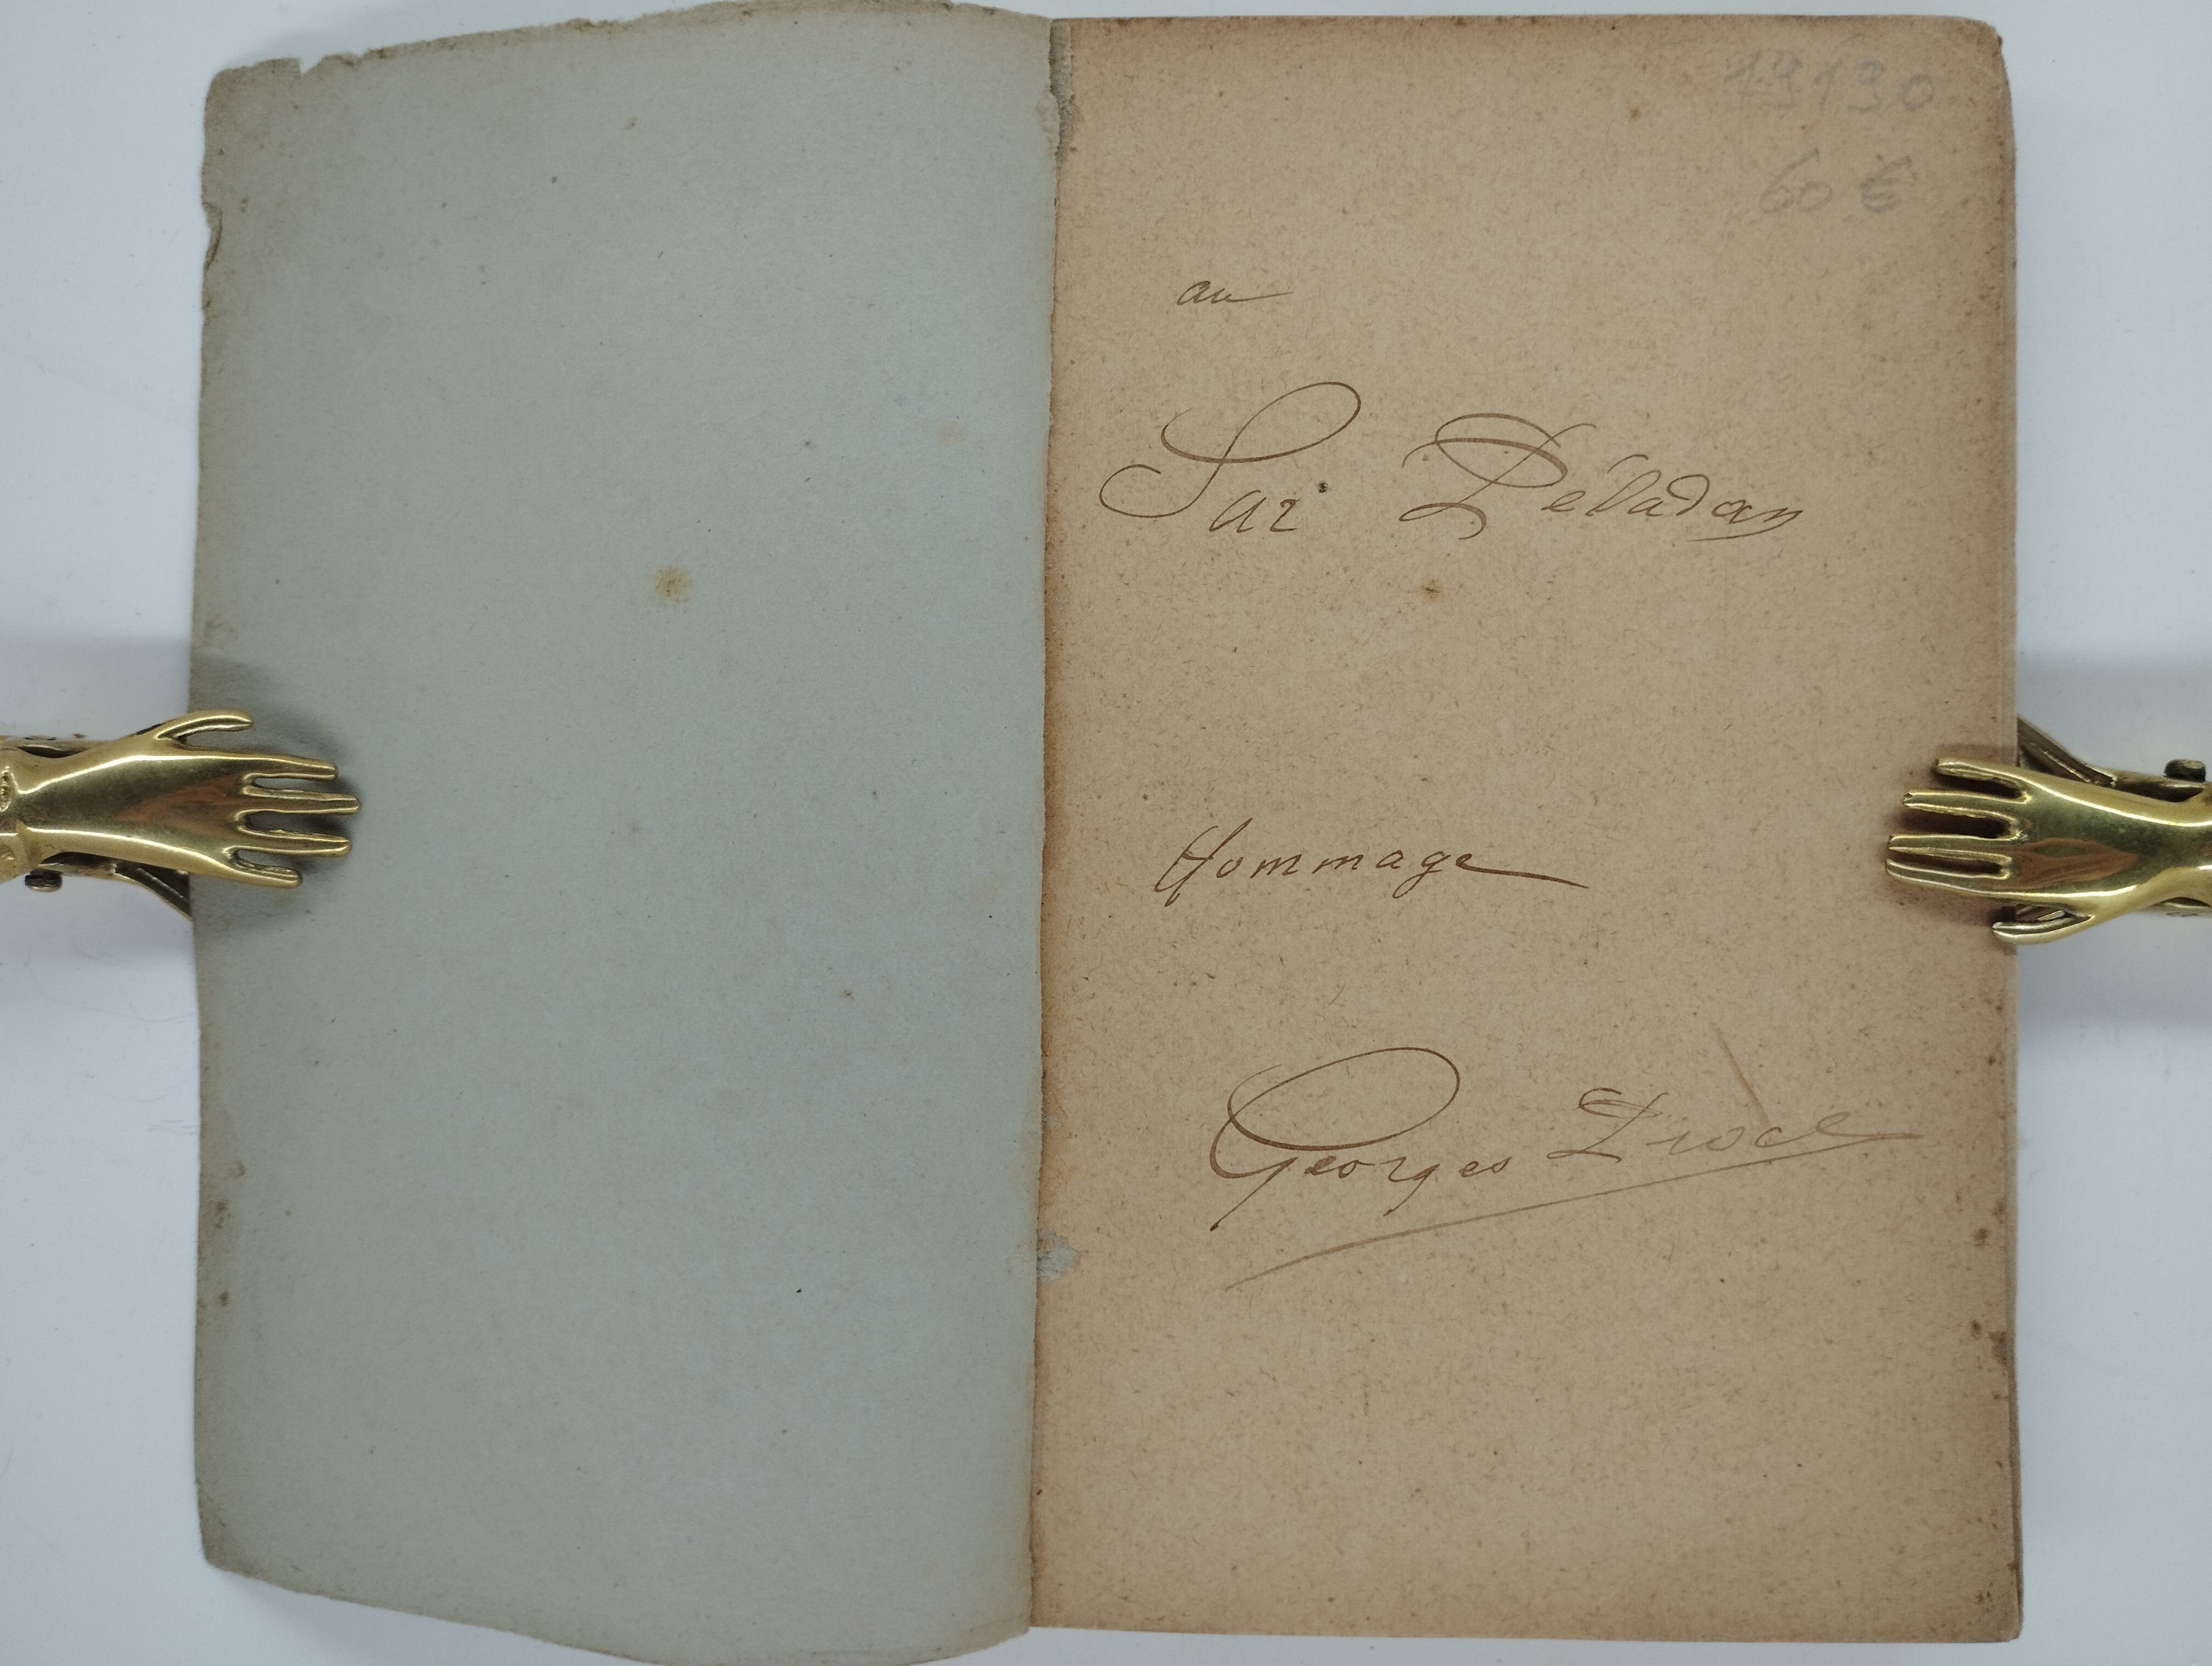 19190
60 €
au
Sar Péladan
Hommage
Georges